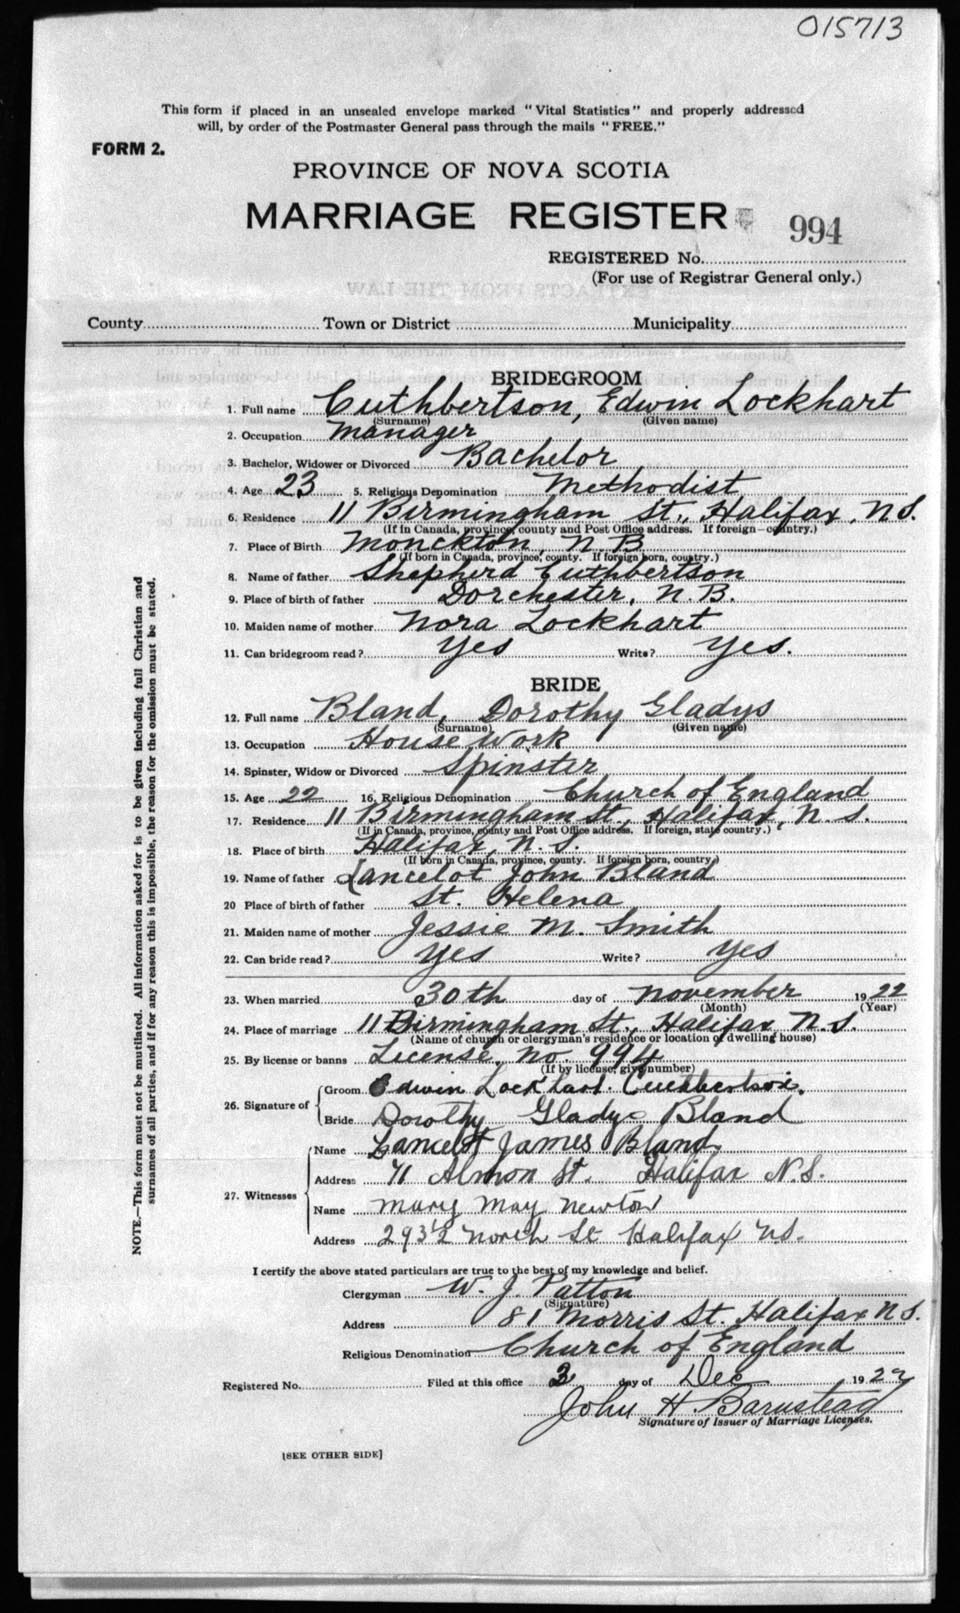 015713
This form if placed in an unsealed envelope marked "Vital Statistics" and properly addressed
will, by order of the Postmaster General pass through the mails "FREE."
FORM 2.
PROVINCE OF NOVA SCOTIA
MARRIAGE REGISTER
994
REGISTERED No.
(For use of Registrar General only.)
County Town or District Municipality
BRIDEGROOM
1. Full name Cuthbertson, Edwin Lockhart
(Surname) (Given name)
2. Occupation Manager
3. Bachelor, Widower or Divorced Bachelor
4. Age 23 5. Religious Denomination Methodist
6. Residence 11 Birmingham St., Halifax, N.S.
(If in Canada, province, county and Post Office address. If foreign—country.)
7. Place of Birth Monckton, N.B.
(If born in Canada, province, county. If foreign born, country.)
8. Name of father Shepherd Cuthbertson
9. Place of birth of father Dorchester, N.B.
10. Maiden name of mother Nora Lockhart
11. Can bridegroom read? Yes Write? Yes.
BRIDE
12. Full name Bland, Dorothy Gladys
(Surname) (Given name)
13. Occupation House Work
14. Spinster, Widow or Divorced Spinster
15. Age 22 16. Religious Denomination Church of England
17. Residence 11 Birmingham St., Halifax, N.S.
(If in Canada, province, county and Post Office address. If foreign, state country.)
18. Place of birth Halifax, N.S.
(If born in Canada, province, county. If foreign born, country)
19. Name of father Lancelot John Bland
20 Place of birth of father St. Helena
21. Maiden name of mother Jessie M. Smith
22. Can bride read? Yes Write? Yes
23. When married 30th day of November 1922
(Month) (Year)
24. Place of marriage 11 Birmingham St., Halifax N.S.
(Name of church or clergyman's residence or location of dwelling house)
25. By license or banns License, No. 994
(If by license, give number)
26. Signature of Groom Edwin Lockhart Cuthbertson.
Bride Dorothy Gladys Bland
27. Witnesses Name Lancelot James Bland
Address 71 Almon St. Halifax N.S.
Name Mary May Newton
Address 293½ North St Halifax N.S.
I certify the above stated particulars are true to the best of my knowledge and belief.
Clergyman W. J. Patton
(Signature)
Address 81 Morris St. Halifax N.S.
Religious Denomination Church of England
Registered No. Filed at this office 2 day of Dec 1922
John H Barnstead
Signature of Issuer of Marriage Licenses.
[SEE OTHER SIDE]
NOTE.—This form must not be mutilated. All information asked for is to be given including full Christian and
surnames of all parties, and if for any reason this is impossible, the reason for the omission must be stated.